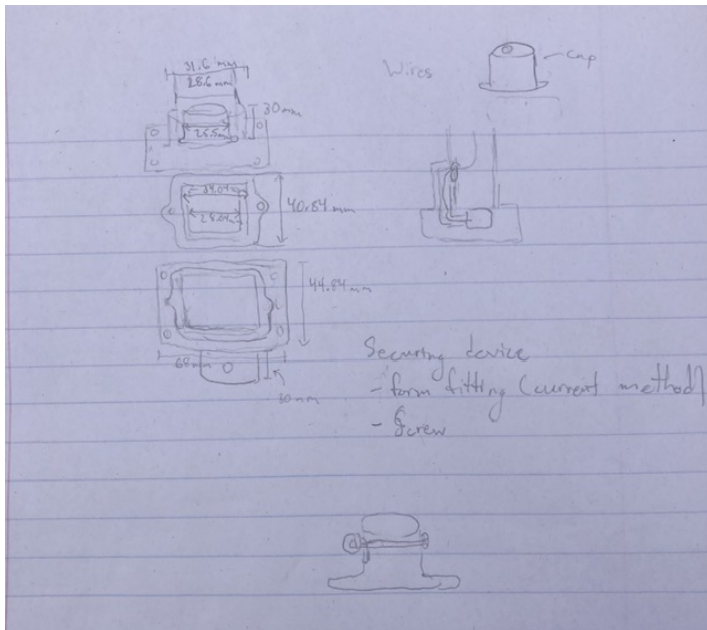 31.6 mm
28.6mm
Wires
cap
30mm
25.5mm
40.84mm
44.84mm
68mm
30mm
Securing device
- form fitting (current method)
- Screw